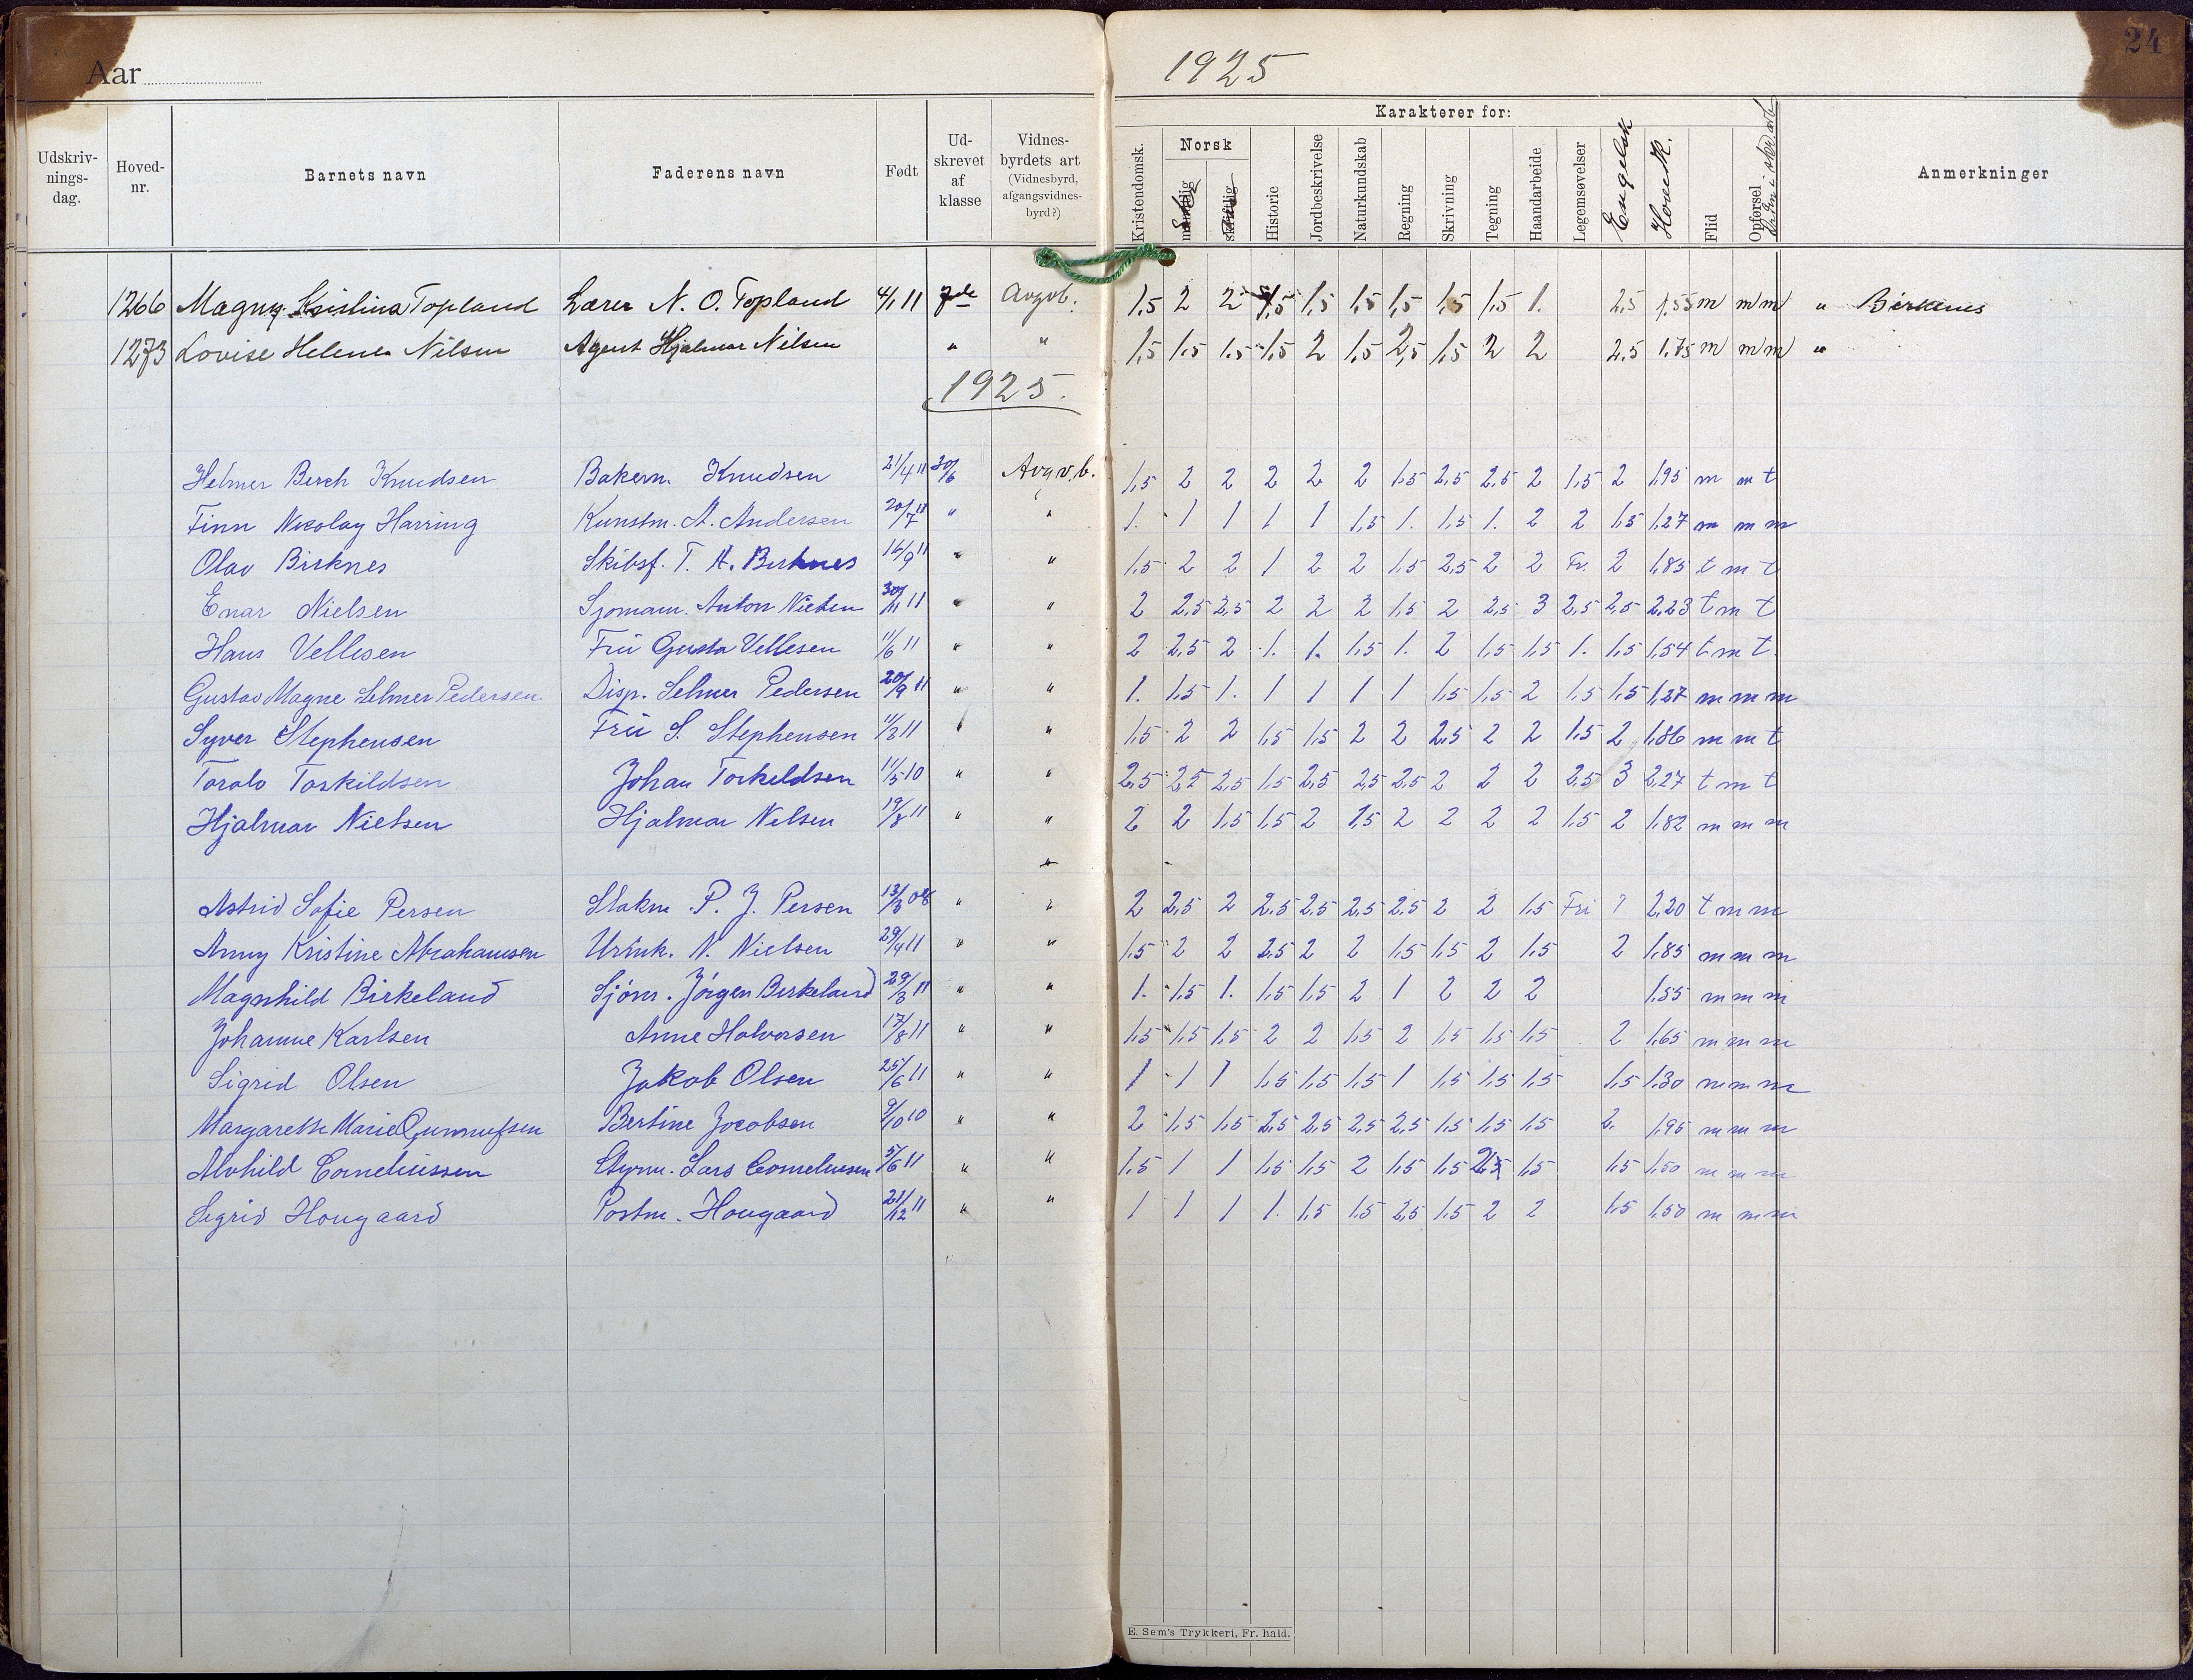 Aar 1925
24
Udskrivningsdag. Hovednr. Barnets navn Faderens navn Født Udskrevet af klasse Vidnesbyrdets art (Vidnesbyrd, afgangsvidnesbyrd?)
Karakterer for:
Kristendomsk. Norsk mundtlig skriftlig Historie Jordbeskrivelse Naturkundskab Regning Skrivning Tegning Haandarbeide Legemsøvelser Engelsk Hovedk. Flid Opførsel Anmerkninger
1266 Topland Lærer N. O. Topland 4/1 11 7de Avgvb. 1,5 2 2 1,5 1,5 1,5 1,5 1,5 1,5 1. 2,5 1,55 m m m " Birkenes
1273 Lovise Helene Nilsen Agent Hjalmar Nilsen " " 1,5 1,5 1,5 1,5 2 1,5 2,5 1,5 2 2 2,5 1,75 m m m "
1925.
Helmer Berch Knudsen Bakerm. Knudsen 21/4 11 30/6 Avgv.b. 1,5 2 2 2 2 2 1,5 2,5 2,5 2 1,5 2 1,95 m m t
Finn Nicolay Harring Kunstm. A. Andersen 20/7 11 " " 1. 1 1 1 1 1,5 1. 1,5 1. 2 2 1,5 1,27 m m m
Olav Birknes Skibsf. T. A. Birknes 16/9 11 " " 1,5 2 2 1 2 2 1,5 2,5 2 2 Fr. 2 1,85 t m t
Enar Nielsen Sjømann. Anton Nielsen 30/11 11 " " 2 2,5 2,5 2 2 2 1,5 2 2,5 3 2,5 2,5 2,23 t m t
Hans Vellesen Fru Gusta Vellesen 11/6 11 " " 2 2,5 2 1. 1. 1,5 1. 2 1,5 1,5 1. 1,5 1,54 t m t.
Gustav Magne Selmer Pedersen Disp. Selmer Pedersen 20/9 11 " " 1. 1,5 1. 1 1 1 1 1,5 1,5 2 1,5 1,5 1,27 m m m
Syver Stephensen Fru S. Stephensen 11/3 11 " " 1,5 2 2 1,5 1,5 2 2 2,5 2 2 1,5 2 1,86 m m t
Toralv Torkildsen Johan Torkildsen 11/5 10 " " 2,5 2,5 2,5 1,5 2,5 2,5 2,5 2 2 2 2,5 3 2,27 t m t
Hjalmar Nielsen Hjalmar Nilsen 19/8 11 " " 2 2 1,5 1,5 2 1,5 2 2 2 2 1,5 2 1,82 m m m
"
Astrid Sofie Persen P. J. Persen 13/3 08 " " 2 2,5 2 2,5 2,5 2,5 2,5 2 2 1,5 Fri ? 2,20 t m m
Anny Kristine Abrahamsen Urmk. N. Nielsen 29/4 11 " " 1,5 2 2 2,5 2 2 1,5 1,5 2 1,5 2 1,85 m m m
Magnhild Birkeland Sjøm. Jörgen Birkeland 29/3 11 " " 1. 1,5 1. 1,5 1,5 2 1 2 2 2 1,55 m m m
Johanne Karlsen Anne Halvorsen 17/8 11 " " 1,5 1,5 1,5 2 2 1,5 2 1,5 1,5 1,5 2 1,65 m m m
Sigrid Olsen Jakob Olsen 25/6 11 " " 1 1 1 1,5 1,5 1,5 1 1,5 1,5 1,5 1,5 1,30 m m m
Margarethe Marie Gunnufsen Bertine Jacobsen 9/10 10 " " 2 1,5 1,5 2,5 2,5 2,5 2,5 1,5 1,5 1,5 2. 1,95 m m m
Alvhild Corneliussen Styrm. Lars Corneliussen 5/6 11 " " 1,5 1 1 1,5 1,5 2 1,5 1,5 2,5 1,5 1,5 1,50 m m m
Sigrid Hougaard Postm. Hougaard 21/12 11 " " 1 1 1 1. 1,5 1,5 2,5 1,5 2 2 1,5 1,50 m m m
E. Sem's Trykkeri, Fr. hald.